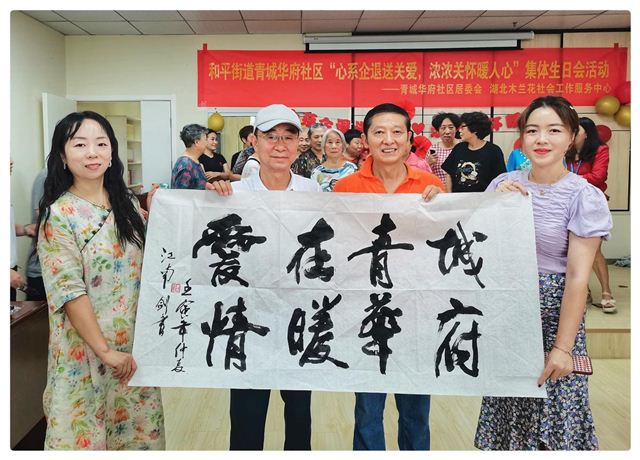 和平街道青城华府社区“心系企退送关爱，浓浓关怀暖人心”集体生日会活动
——青城华府社区居委会 湖北木兰花社会工作服务中心
愛在青城
情暖華府
江南剑書